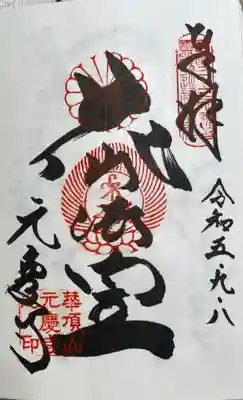 奉拝
令和五九八
花山法皇
元慶寺
華頂山
元慶寺
印